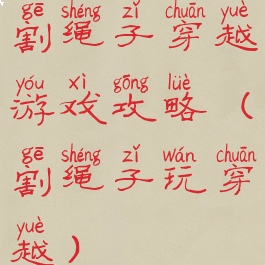 gē shéng zǐ chuān yuè
割绳子穿越
yóu xì gōng lüè
游戏攻略（
gē shéng zǐ wán chuān
割绳子玩穿
yuè
越）